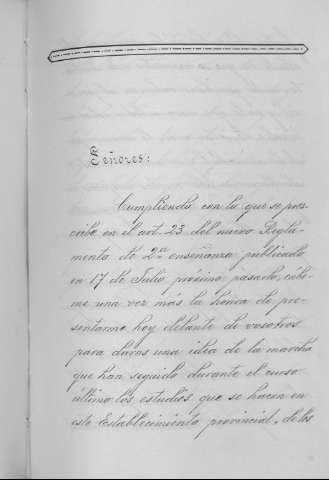 Señores:
Cumpliendo con lo que se pres-
cribe en el art. 23 del nuevo Regla-
mento de 2ª enseñanza publicado
en 17 de Julio próximo pasado, cábe-
me una vez mas la honra de pre-
sentarme hoy delante de vosotros
para daros una idea de la marcha
que han seguido durante el curso
último los estudios que se hacen en
este Establecimiento provincial, de los